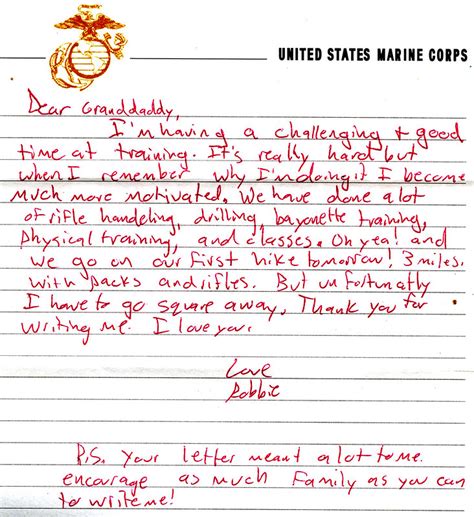 UNITED STATES MARINE CORPS
Dear Granddaddy,
I'm having a challenging & good
time at training. It's really hard but
when I remember why I'm doing it I become
much more motivated. We have done a lot
of rifle handeling, drilling, bayonette training,
physical training, and classes. Oh yea! and
we go on our first hike tomorrow! 3 miles.
with packs and rifles. But unfortunatly
I have to go square away. Thank you for
writing me. I love you.
Love
Robbie
P.S. Your letter meant a lot to me.
encourage as much Family as you can
to write me!